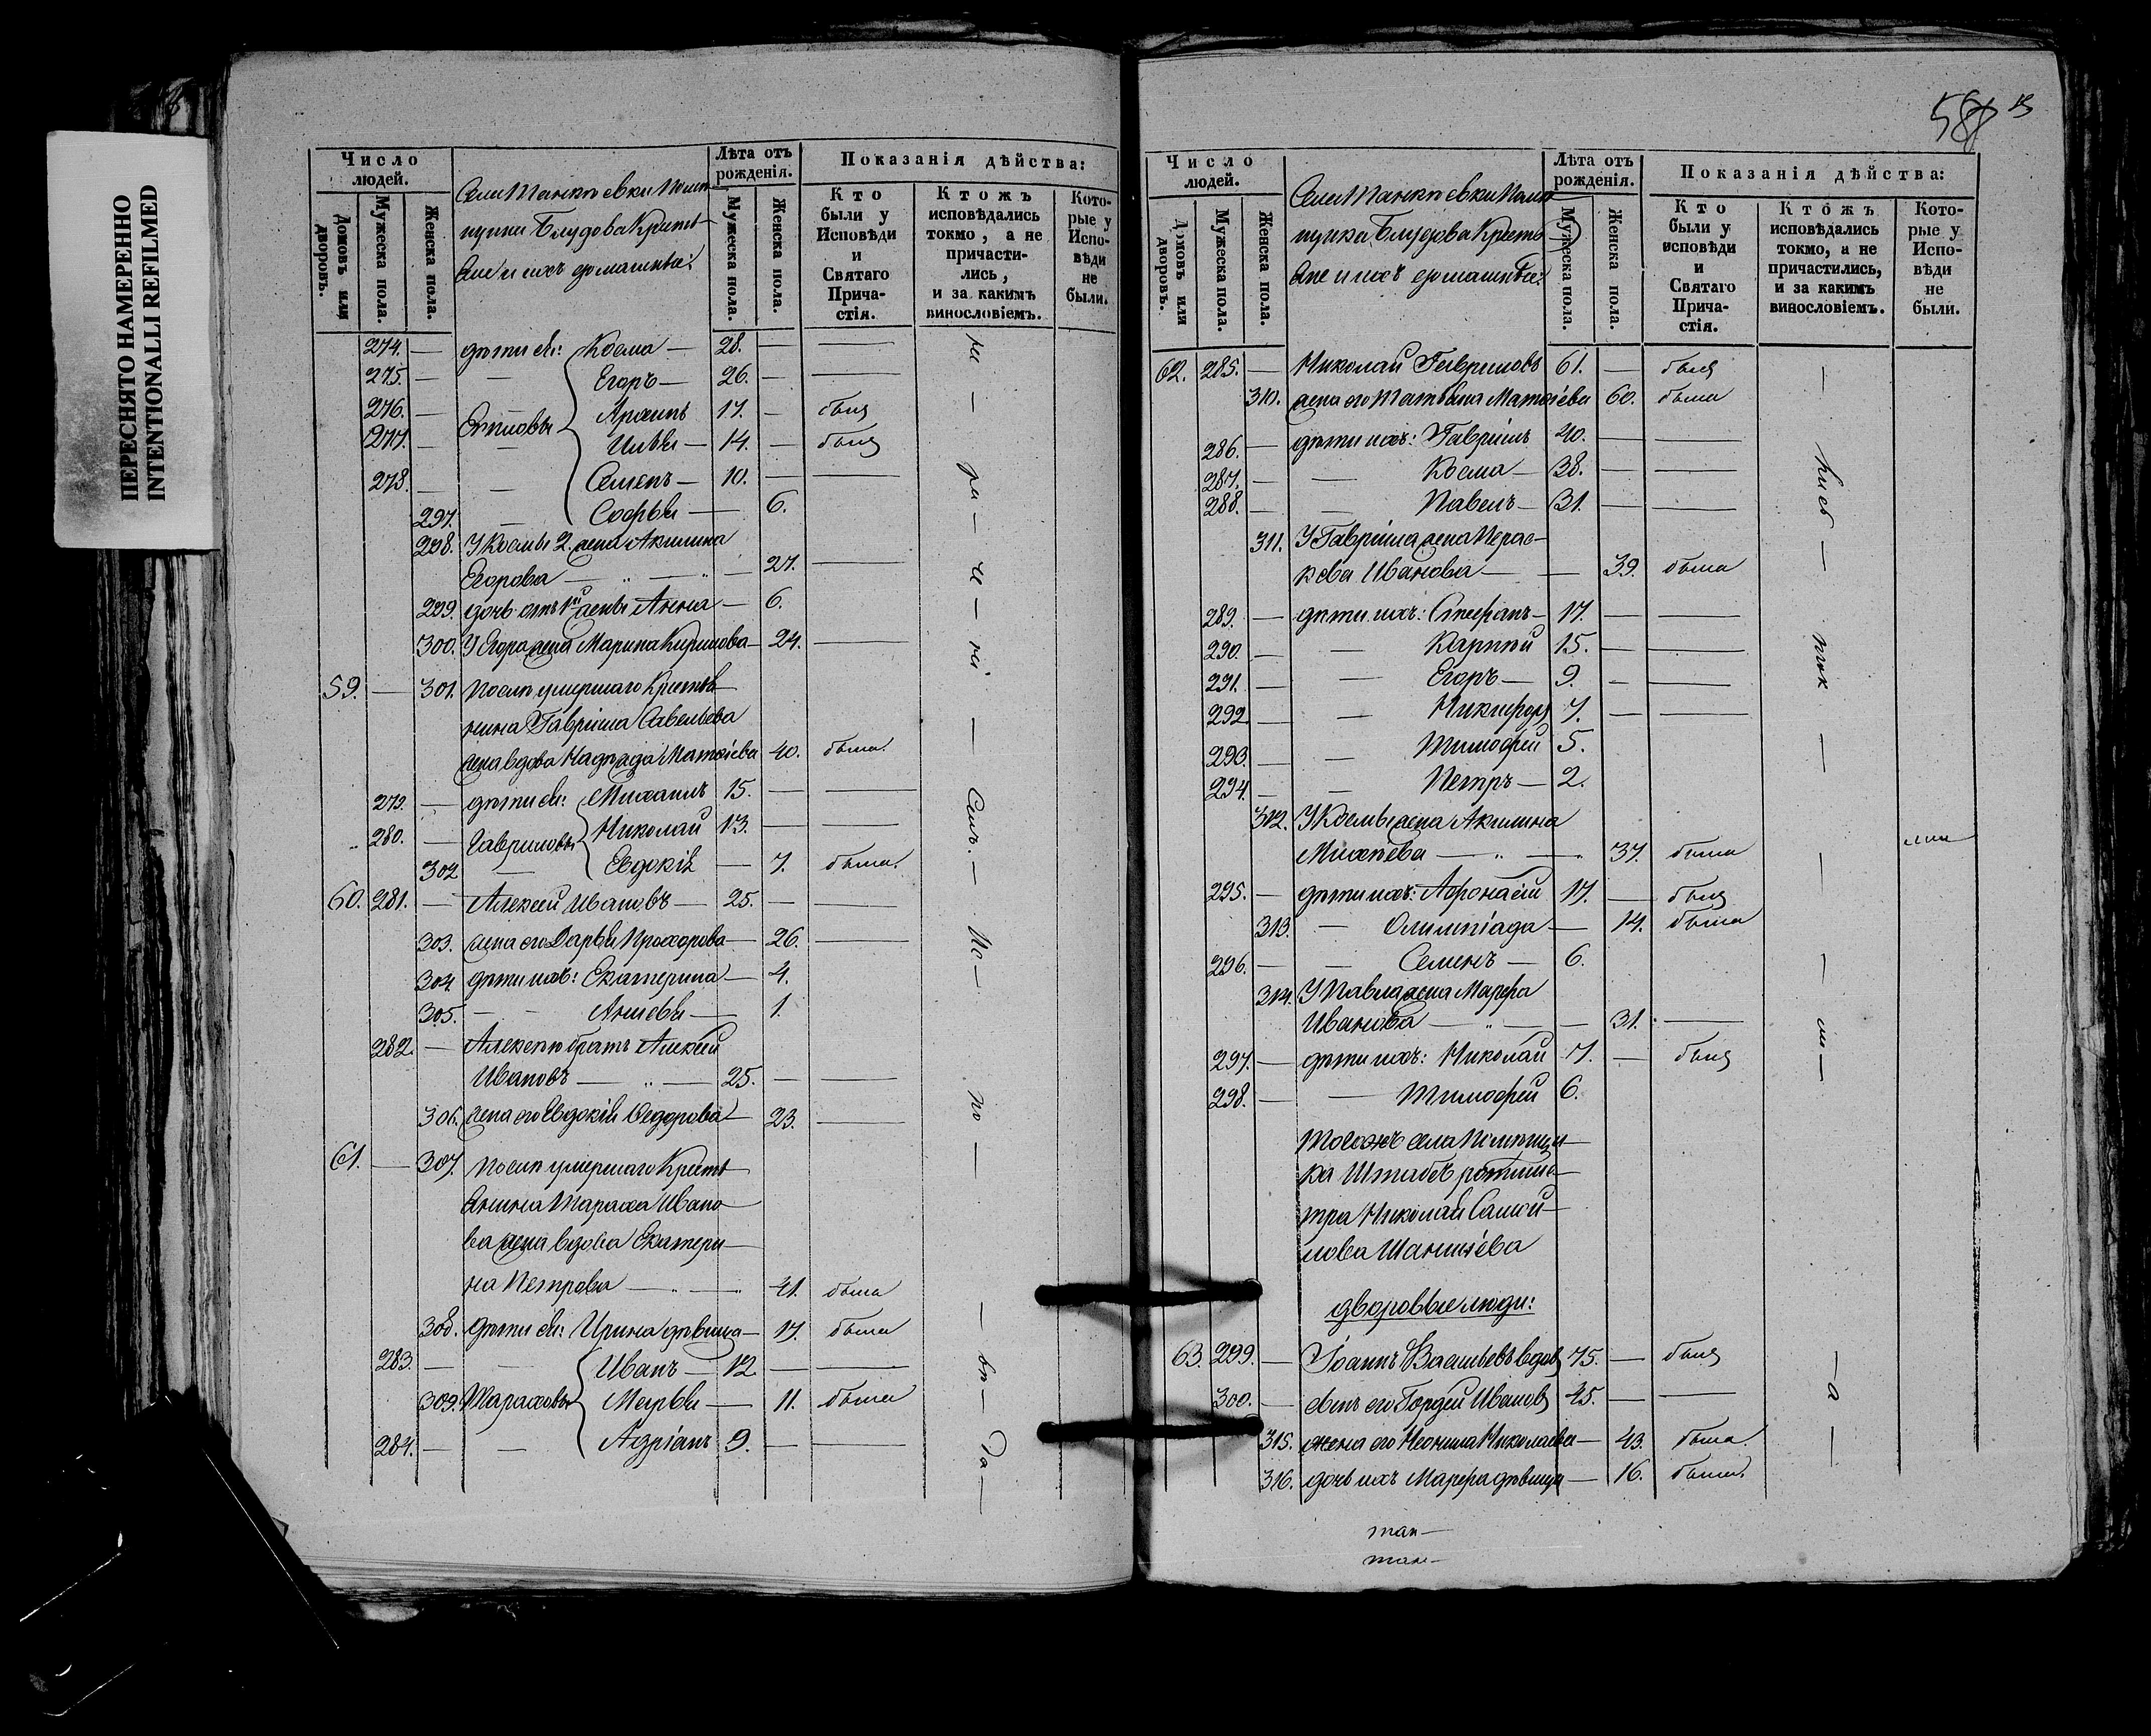 ПЕРЕСНЯТО НАМЕРЕННО
INTENTIONALLI REFILMED
Число людей.
Домовъ или дворовъ.
Мужеска пола.
Женска пола.
Лѣта отъ рожденія.
Мужеска пола.
Женска пола.
Показанія дѣйства:
Кто были у Исповѣди и Святаго Прича-стія.
Ктожъ исповѣдались токмо, а не причасти-лись, и за какимъ винословіемъ.
Кото-рые у Испо-вѣди не были.
274. — дѣти ея: Косма — 28. —
275. — — Егоръ — 26. —
276. — Архипъ 17. — былъ
277. — — Илья — 14. — былъ
278. — — Семенъ — 10. —
297. — Софья — 6.
298. У Космы 2. жена Акилина
Егорова — 27. —
299. дочь отъ 1й жены Анна — 6.
300. У Егора жена Марина Кирилова — 24. —
59. — 301. Послѣ умершаго Крестья-
нина Гавріила Савельева
жена вдова Надежда Матвіева 40. была.
279. — дѣти ея: Михаилъ 15. —
280. — Гавриловы Николай 13. —
302 — Евдокія — 7. была.
60. 281. — Алексѣй Ивановъ — 25. —
303. жена его Дарья Прохорова — 26. —
304. дѣти ихъ: Екатерина — 4.
305. — —
282. — Алексѣю братъ Алексѣй
Ивановъ — 25. —
306. жена его Евдокія Ѳедорова — 23. —
61. — 307. Послѣ умершаго Кресть-
янина Тараха Ивано-
ва жена вдова Екатери-
на Петрова — 41. была
308. дѣти ея: Ирина дѣвица — 17. была
283. — — Иванъ — 12. —
309. Тараховы Марья — 11. была
284. — — Адріанъ 9. —
588
Число людей.
Домовъ или дворовъ.
Мужеска пола.
Женска пола.
Лѣта отъ рожденія.
Мужеска пола.
Женска пола.
Показанія дѣйства:
Кто были у исповѣди и Святаго Прича-стія.
Ктожъ исповѣдались токмо, а не причастились, и за какимъ винословіемъ.
Кото-рые у Испо-вѣди не были.
62. 285. — Николай Гавриловъ 61. — былъ
310. жена его Татьяна Матвіева 60. была
286. — дѣти ихъ: Гавріилъ 40. —
287. — — Косма — 38. —
288. — — Павелъ — 31. —
311. У Гавріила жена Парас-
кева Иванова — 39. была
289. — дѣти ихъ: Стефанъ — 17. —
290. — — Карпъ 15. —
291. — — Егоръ — 9. —
292. — — Никифоръ 7. —
293. — — Тимофей 5.
294. — — Петръ — 2.
312. У Космы жена Акилина
Михѣева — 37. была
295. — дѣти ихъ: Афонасій 17. — былъ
313. — Олимпіада — 14. была
296. — — Семенъ — 6.
314. У Павла жена Марфа
Иванова — 31. —
297. — дѣти ихъ: Николай 7. — былъ
298. — — Тимофей 6.
Тогожъ села Помѣщи-
ка Штабъ ротмис-
тра Николая Самой-
лова
дворовые люди:
63. 299. — Іоаннъ Васильевъ вдовъ 75. — былъ
300. — сынъ его Гордѣй Ивановъ 45. —
315. жена его Неонила Николаева — 43. была.
316. дочь ихъ Марфа дѣвица — 16. была.